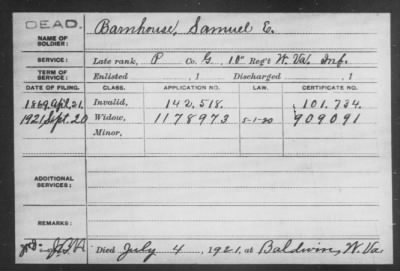 DEAD.
NAME OF SOLDIER: Barnhouse, Samuel E.
SERVICE: Late rank, P Co. G, 10" Reg't W. Va. Inf.
TERM OF SERVICE: Enlisted , 1 Discharged , 1
DATE OF FILING. CLASS. APPLICATION NO. LAW. CERTIFICATE NO.
1869, Apl, 21. Invalid, 142,518. 101.734.
1921, Sept. 20 Widow, 1178973 5-1-20 909091
Minor,
ADDITIONAL SERVICES:
REMARKS:
Died July 4, 1921, at Baldwin, W. Va.